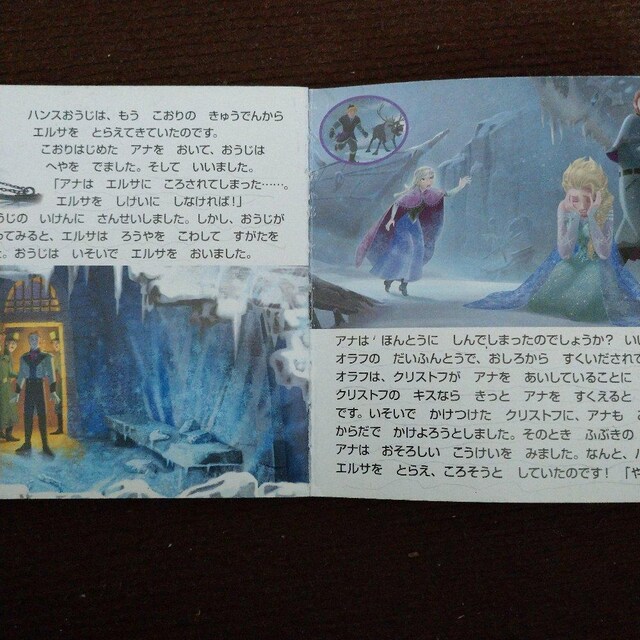 ハンスおうじは、もう こおりの きゅうでんから
エルサを とらえてきていたのです。
こおりはじめた アナを おいて、おうじは
へやを でました。そして いいました。
「アナは エルサに ころされてしまった……。
エルサを しけいに しなければ！」
うじの いけんに さんせいしました。しかし、おうじが
ってみると、エルサは ろうやを こわして すがたを
。おうじは いそいで エルサを おいました。
アナは ほんとうに しんでしまったのでしょうか？ い
オラフの だいふんとうで、おしろから すくいだされて
オラフは、クリストフが アナを あいしていることに
クリストフの キスなら きっと アナを すくえると
です。いそいで かけつけた クリストフに、アナも
からだで かけよろうとしました。そのとき ふぶきの
アナは おそろしい こうけいを みました。なんと、
エルサを とらえ、ころそうと していたのです！ 「や